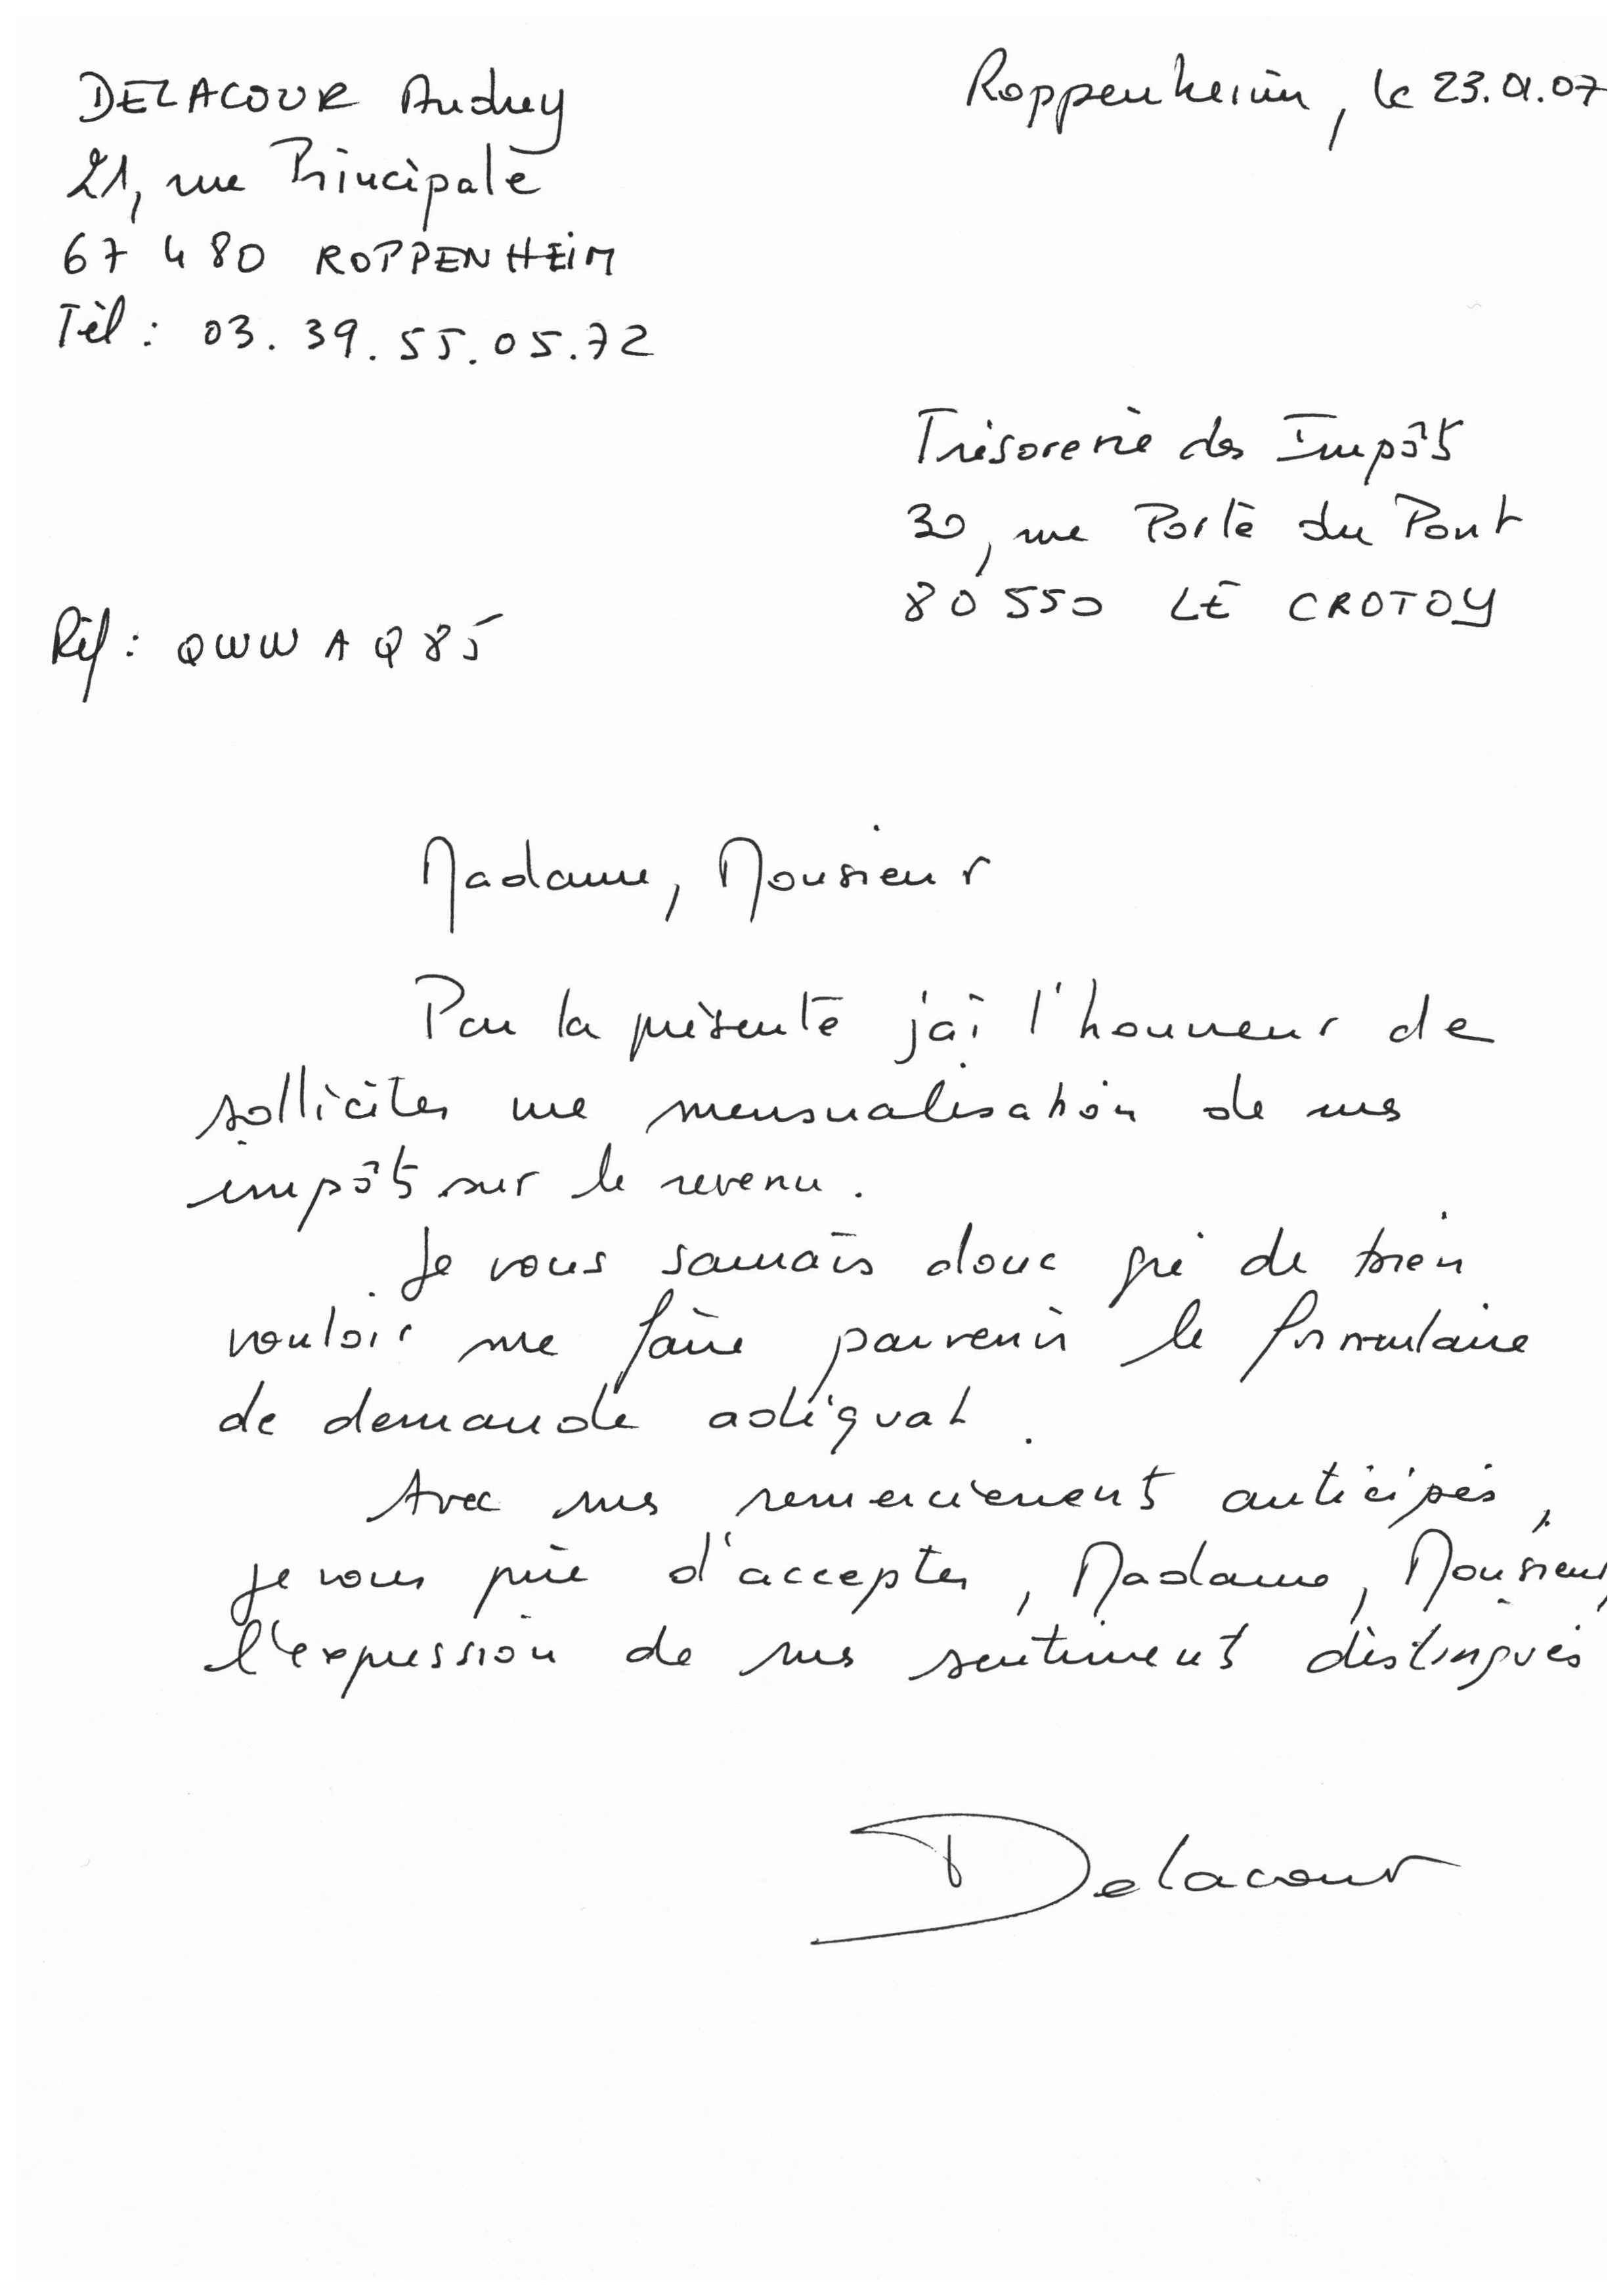 DELACOUR Audrey
Roppenheim, le 23.01.07
21, rue Principale
67 480 ROPPENHEIM
Tél : 03. 39. 55. 05. 72
Trésorerie des Impôts
30, rue Porte du Pont
80 550 LE CROTOY
Réf : QWWAQ85
Madame, Monsieur
Par la présente j'ai l'honneur de
solliciter une mensualisation de mes
impôts sur le revenu.
Je vous saurais donc gré de bien
vouloir me faire parvenir le formulaire
de demande adéquat.
Avec mes remerciements anticipés,
je vous prie d'accepter, Madame, Monsieur,
l'expression de mes sentiments distingués
Delacour